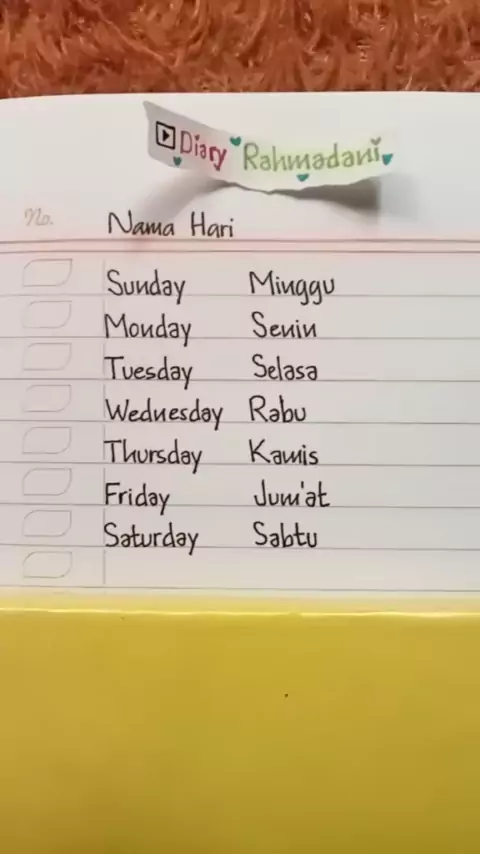 Diary Rahmadani
No. Nama Hari
Sunday Minggu
Monday Senin
Tuesday Selasa
Wednesday Rabu
Thursday Kamis
Friday Jum'at
Saturday Sabtu